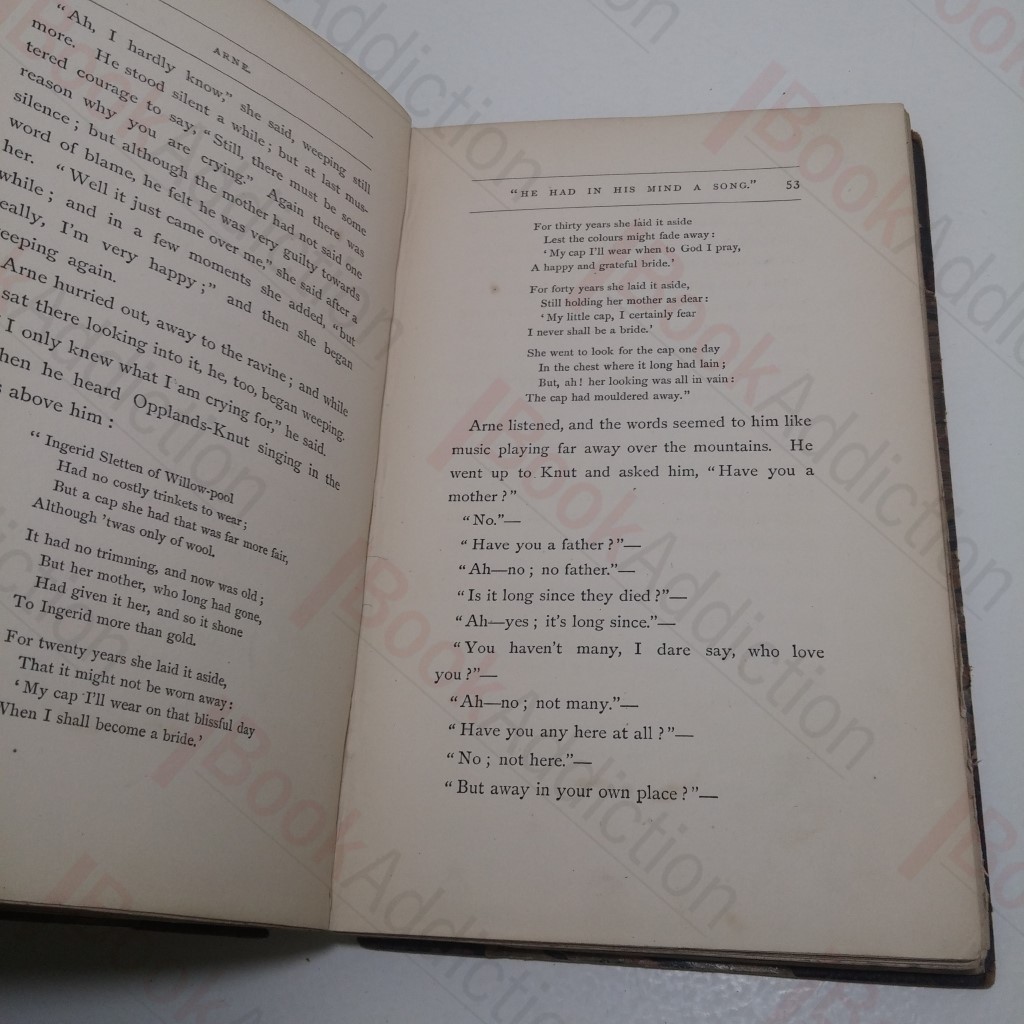 ARNE.
“Ah, I hardly know,” she said, weeping still
more. He stood silent a while; but at last mus-
tered courage to say, “Still, there must be some
reason why you are crying.” Again there was
silence; but although the mother had not said one
word of blame, he felt he was very guilty towards
her. “Well it just came over me,” she said after a
while; and in a few moments she added, “but
eally, I’m very happy;” and then she began
eeping again.
Arne hurried out, away to the ravine; and while
sat there looking into it, he, too, began weeping.
I only knew what I am crying for,” he said.
hen he heard Opplands-Knut singing in the
above him:
“Ingerid Sletten of Willow-pool
Had no costly trinkets to wear;
But a cap she had that was far more fair,
Although ’twas only of wool.
It had no trimming, and now was old;
But her mother, who long had gone,
Had given it her, and so it shone
To Ingerid more than gold.
For twenty years she laid it aside,
That it might not be worn away:
‘My cap I’ll wear on that blissful day
When I shall become a bride.’
“HE HAD IN HIS MIND A SONG.” 53
For thirty years she laid it aside
Lest the colours might fade away:
‘My cap I’ll wear when to God I pray,
A happy and grateful bride.’
For forty years she laid it aside,
Still holding her mother as dear:
‘My little cap, I certainly fear
I never shall be a bride.’
She went to look for the cap one day
In the chest where it long had lain;
But, ah! her looking was all in vain:
The cap had mouldered away.”
Arne listened, and the words seemed to him like
music playing far away over the mountains. He
went up to Knut and asked him, “Have you a
mother?”
“No.”—
“Have you a father?”—
“Ah—no; no father.”—
“Is it long since they died?”—
“Ah—yes; it’s long since.”—
“You haven’t many, I dare say, who love
you?”—
“Ah—no; not many.”—
“Have you any here at all?”—
“No; not here.”—
“But away in your own place?”—
BookAddiction